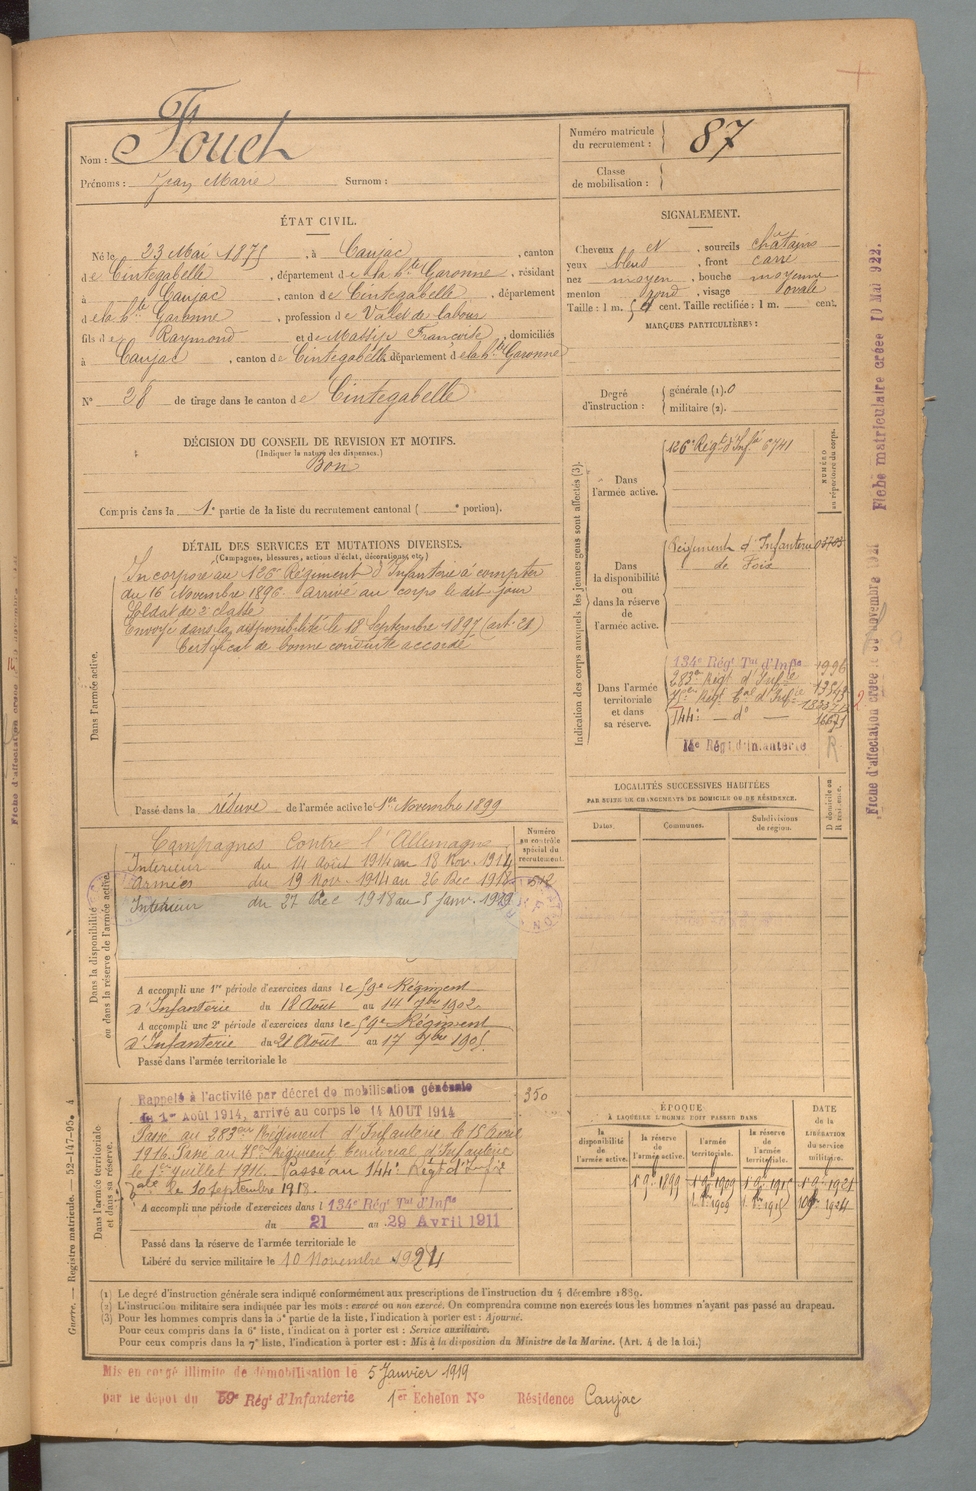 Nom : Fouch
Prénoms : Jean Marie Surnom :
Numéro matricule du recrutement : 87
Classe de mobilisation :
ÉTAT CIVIL.
Né le 23 Mai 1875, à Caujac, canton
de Cintegabelle, département de la hte Garonne, résidant
à Caujac, canton de Cintegabelle, département
de la hte Garonne, profession de Valet de labour
fils de Raymond et de Massip Françoise, domiciliés
à Caujac, canton de Cintegabelle, département de la hte Garonne
N° 28 de tirage dans le canton de Cintegabelle
DÉCISION DU CONSEIL DE REVISION ET MOTIFS.
(Indiquer la nature des dispenses.)
Bon
Compris dans la 1e partie de la liste du recrutement cantonal ( e portion).
SIGNALEMENT.
Cheveux et, sourcils châtains
yeux bleus, front carré
nez moyen, bouche moyenne
menton rond, visage ovale
Taille : 1 m. 54 cent. Taille rectifiée : 1 m. cent.
MARQUES PARTICULIÈRES :
Degré d'instruction : générale (1). 0
militaire (2).
Indication des corps auxquels les jeunes gens sont affectés (3).
NUMÉRO au répertoire du corps.
Dans l'armée active.
126e Régt d'Infie 6741
Dans la disponibilité ou dans la réserve de l'armée active.
Régiment d'Infanterie
de Foix
Dans l'armée territoriale et dans sa réserve.
134e Régt Tal d'Infie 1996
283e Régt d'Infie
Régt Tal d'Infie
144e — do —
14e Régt d'Infanterie R
DÉTAIL DES SERVICES ET MUTATIONS DIVERSES.
(Campagnes, blessures, actions d'éclat, décorations, etc.)
Dans l'armée active.
Incorporé au 126e Régiment d'Infanterie à compter
du 16 Novembre 1896 arrivé au corps le dit jour
Soldat de 2e classe
Envoyé dans la disponibilité le 18 Septembre 1897 (art. 21)
Certificat de bonne conduite accordé
Passé dans la réserve de l'armée active le 1er Novembre 1899
LOCALITÉS SUCCESSIVES HABITÉES
PAR SUITE DE CHANGEMENTS DE DOMICILE OU DE RÉSIDENCE.
Dates. Communes. Subdivisions de région. D domicile ou R résidence.
Numéro au contrôle spécial du recrutement.
Dans la disponibilité ou dans la réserve de l'armée active.
Campagnes Contre l'Allemagne
Intérieur du 14 Août 1914 au 18 Nov. 1914
Armées du 19 Nov. 1914 au 26 Dec 1918
Intérieur du 27 Dec 1918 au 5 janv. 1919
A accompli une 1re période d'exercices dans le 59e Régiment
d'Infanterie du 18 Août au 14 7bre 1902.
A accompli une 2e période d'exercices dans le 59e Régiment
d'Infanterie du 21 Août au 17 7bre 1905.
Passé dans l'armée territoriale le
Dans l'armée territoriale et dans sa réserve.
Rappelé à l'activité par décret de mobilisation générale 350
du 1er Août 1914, arrivé au corps le 14 AOUT 1914
Passé au 283ème Régiment d'Infanterie le 15 Avril
1916. Passé au Régiment territorial d'Infanterie
le 1er juillet 1916. Passé au 144e Régt d'Infie
Tale le 10 septembre 1918.
A accompli une période d'exercices dans l 134e Régt Tal d'Infie
du 21 au 29 Avril 1911
Passé dans la réserve de l'armée territoriale le
Libéré du service militaire le 10 Novembre 1924
ÉPOQUE
À LAQUELLE L'HOMME DOIT PASSER DANS
la disponibilité de l'armée active. la réserve de l'armée active. l'armée territoriale. la réserve de l'armée territoriale.
DATE de la LIBÉRATION du service militaire.
1er 9bre 1899 1er 9bre 1909 1er 9bre 1915 1er 9bre 1921
1909 1915 10 9bre 1924
(1) Le degré d'instruction générale sera indiqué conformément aux prescriptions de l'instruction du 4 décembre 1889.
(2) L'instruction militaire sera indiquée par les mots : exercé ou non exercé. On comprendra comme non exercés tous les hommes n'ayant pas passé au drapeau.
(3) Pour les hommes compris dans la 5e partie de la liste, l'indication à porter est : Ajourné.
Pour ceux compris dans la 6e liste, l'indication à porter est : Service auxiliaire.
Pour ceux compris dans la 7e liste, l'indication à porter est : Mis à la disposition du Ministre de la Marine. (Art. 4 de la loi.)
Mis en congé illimité de démobilisation le 5 Janvier 1919
par le dépôt du 59e Régt d'Infanterie 1er Echelon N° Résidence Caujac
Guerre. — Registre matricule. — 52-147-95. 4
Fiche d'affectation créée le novembre 1921 Fiche matriculaire créée 10 Mai 922.